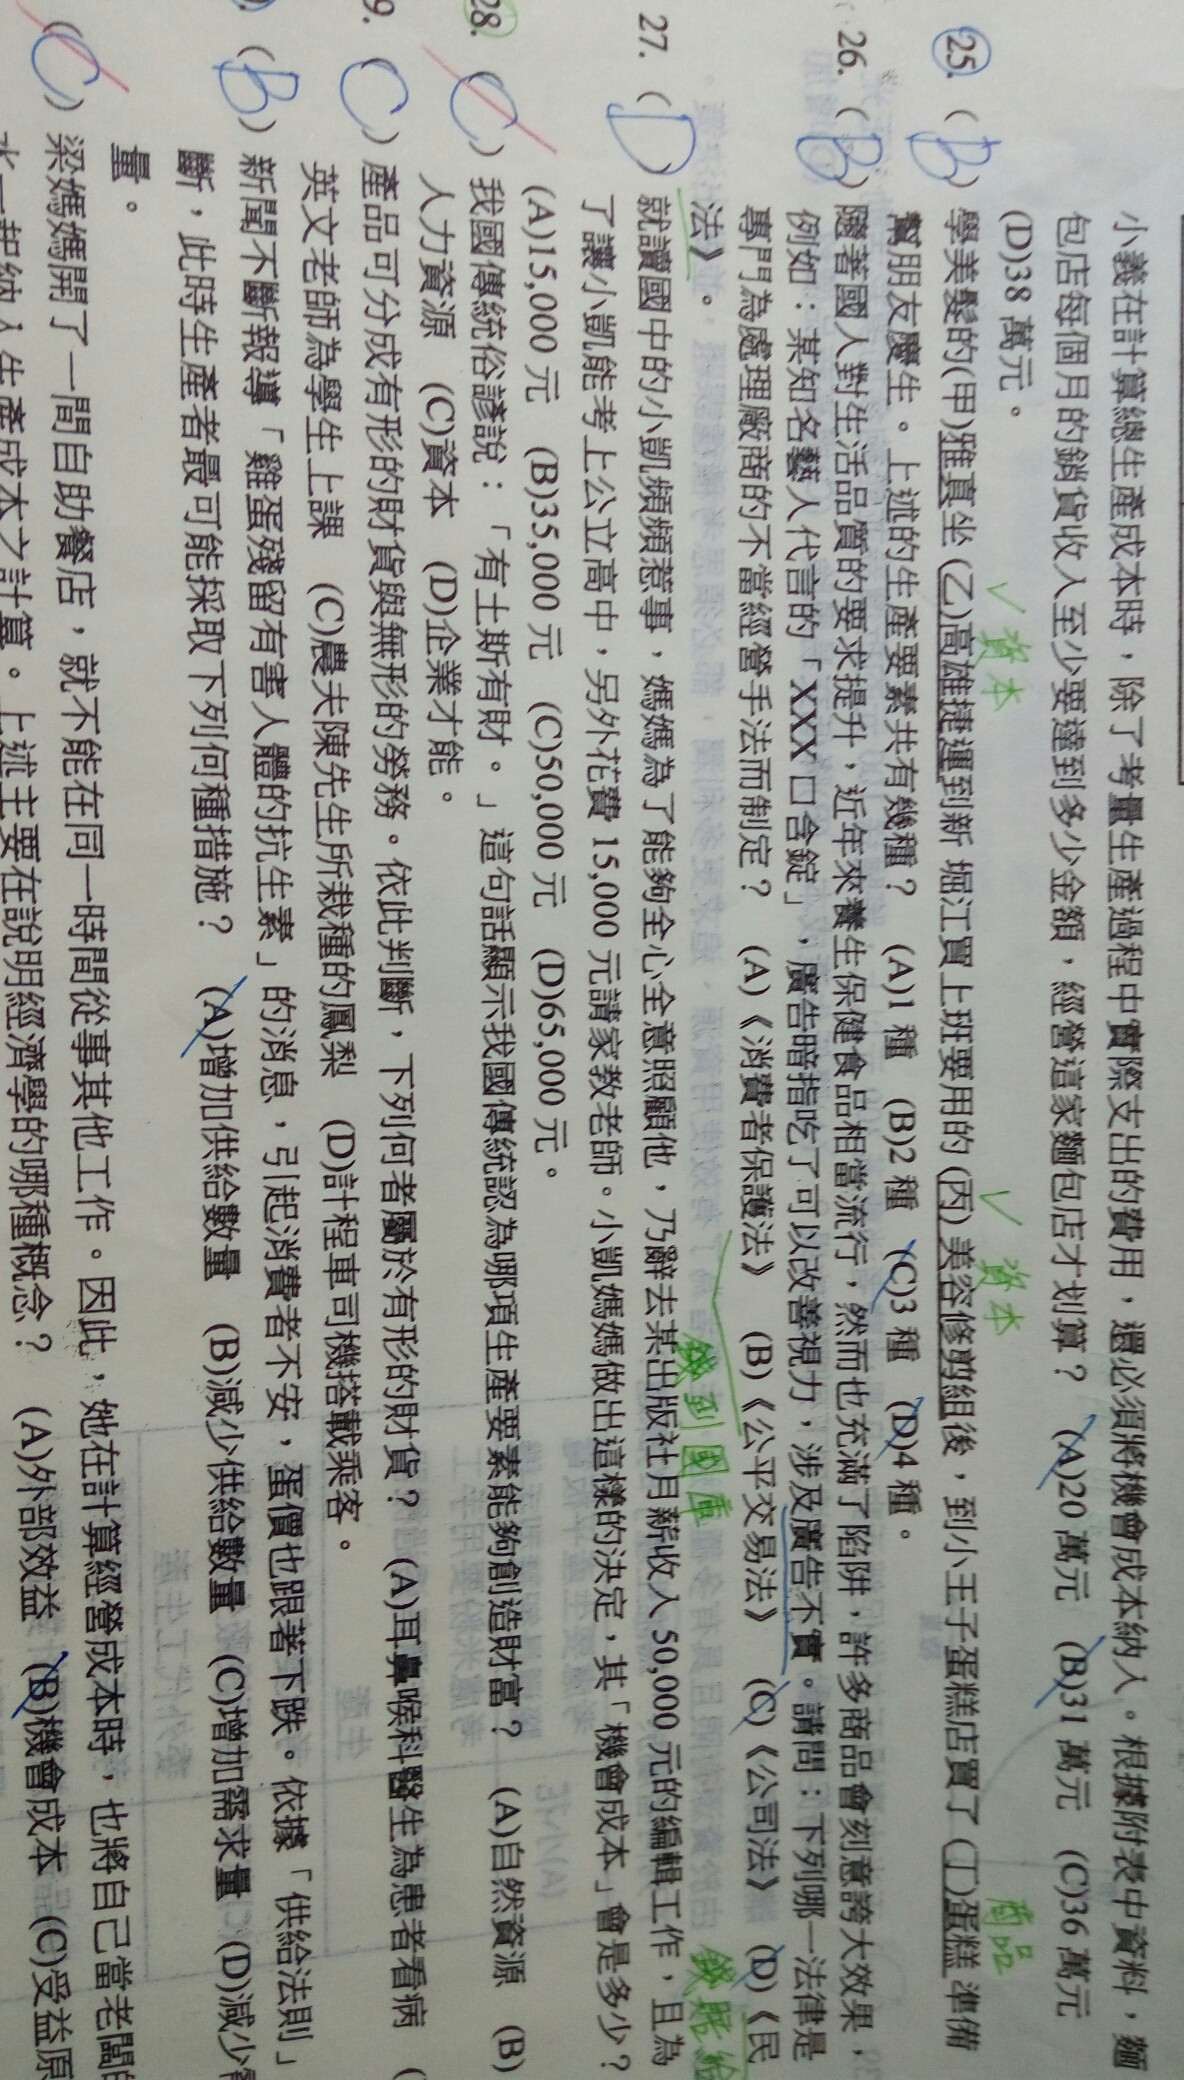 小義在計算總生產成本時，除了考量生產過程中實際支出的費用，還必須將機會成本納入。根據附表中資料，麵
包店每個月的銷貨收入至少要達到多少金額，經營這家麵包店才划算？ (A)20 萬元 (B)31 萬元 (C)36 萬元
(D)38 萬元。
✓資本 ✓資本 商品
25. (B) 學美髮的(甲)雅真坐 (乙)高雄捷運到新 堀江買上班要用的 (丙)美容修剪組後，到小王子蛋糕店買了 (丁)蛋糕 準備
幫朋友慶生。上述的生產要素共有幾種？ (A)1 種 (B)2 種 (C)3 種 (D)4 種。
26. (B) 隨著國人對生活品質的要求提升，近年來養生保健食品相當流行，然而也充滿了陷阱，許多商品會刻意誇大效果，
例如：某知名藝人代言的「XXX 口含錠」，廣告暗指吃了可以改善視力，涉及廣告不實。請問：下列哪一法律是
專門為處理廠商的不當經營手法而制定？ (A)《消費者保護法》 (B)《公平交易法》 (C)《公司法》 (D)《民
法》。 錢到國庫 錢賠給
27. (D) 就讀國中的小凱頻頻惹事，媽媽為了能夠全心全意照顧他，乃辭去某出版社月薪收入 50,000 元的編輯工作，且為
了讓小凱能考上公立高中，另外花費 15,000 元請家教老師。小凱媽媽做出這樣的決定，其「機會成本」會是多少？
(A)15,000 元 (B)35,000 元 (C)50,000 元 (D)65,000 元。
28. (C) 我國傳統俗諺說：「有土斯有財。」這句話顯示我國傳統認為哪項生產要素能夠創造財富？ (A)自然資源 (B)
人力資源 (C)資本 (D)企業才能。
9. (C) 產品可分成有形的財貨與無形的勞務。依此判斷，下列何者屬於有形的財貨？ (A)耳鼻喉科醫生為患者看病 (
英文老師為學生上課 (C)農夫陳先生所栽種的鳳梨 (D)計程車司機搭載乘客。
(B) 新聞不斷報導「雞蛋殘留有害人體的抗生素」的消息，引起消費者不安，蛋價也跟著下跌。依據「供給法則」
斷，此時生產者最可能採取下列何種措施？ (A)增加供給數量 (B)減少供給數量 (C)增加需求量 (D)減少
量。
(C) 梁媽媽開了一間自助餐店，就不能在同一時間從事其他工作。因此，她在計算經營成本時，也將自己當老闆的
水一起納入生產成本之計算。上述主要在說明經濟學的哪種概念？ (A)外部效益 (B)機會成本 (C)受益原